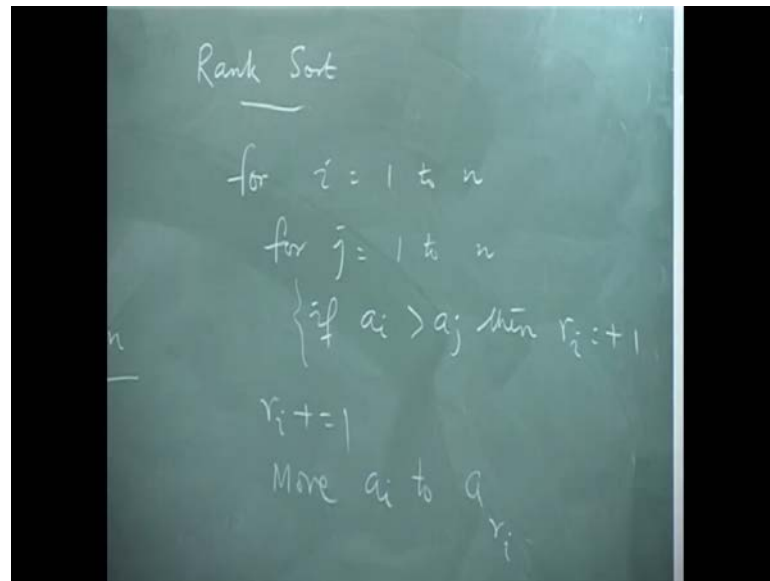 Rank Sort
for i = 1 to n
for j = 1 to n
{if ai > aj then ri :+1
n
ri +=1
Move ai to a ri